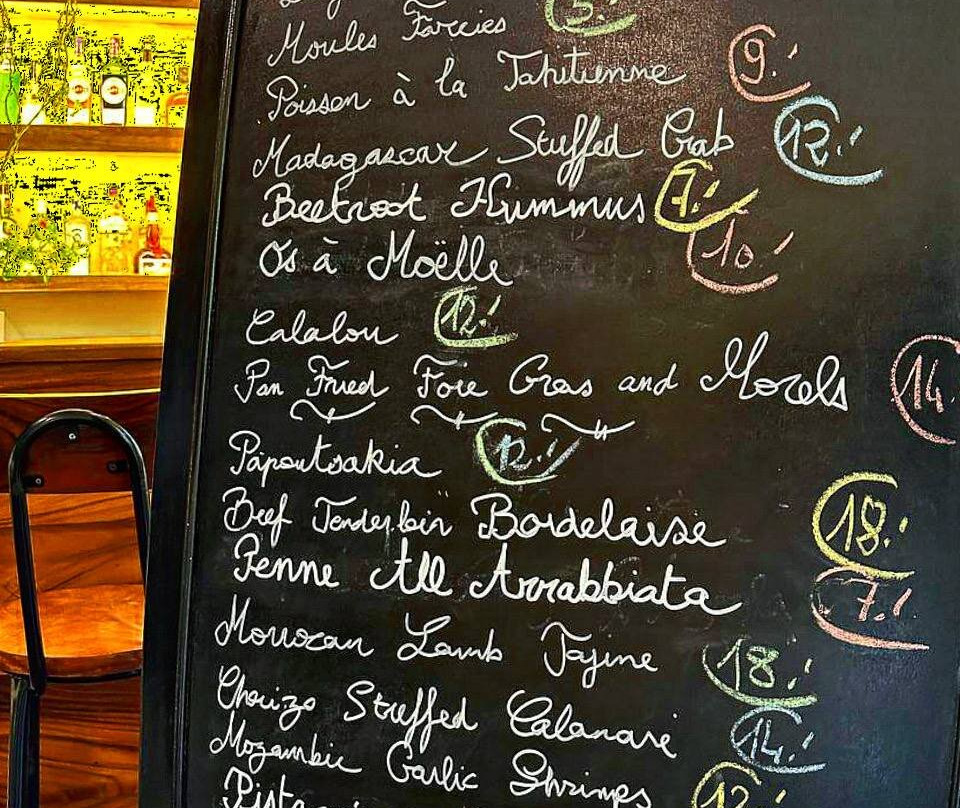 5.-
Moules Farcies
Poisson à la Tahitienne 9.-
Madagascar Stuffed Crab 12.-
Beetroot Hummus 7.-
Os à Moëlle 10.-
Calalou 12.-
Pan Fried Foie Gras and Morels 14.
Papoutsakia 12.-
Beef Tenderloin Bordelaise 18.-
Penne All Arrabbiata 7.-
Morrocan Lamb Tajine 18.-
Chorizo Stuffed Calamari 14.-
Mozambic Garlic Shrimps 12